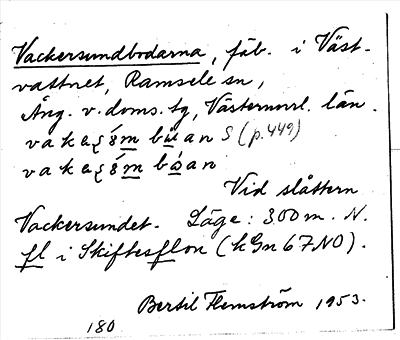 Vackersundbodarna, fäb. i Väst-
vattnet, Ramsele sn,
Ång. v. doms. tg, Västernorrl. län.
(p. 449)
Vid slåttern
Vackersundet. Läge: 300 m. N.
fl i Skiftesflon (kGn 67NO).
Bertil Flemström 1953.
180